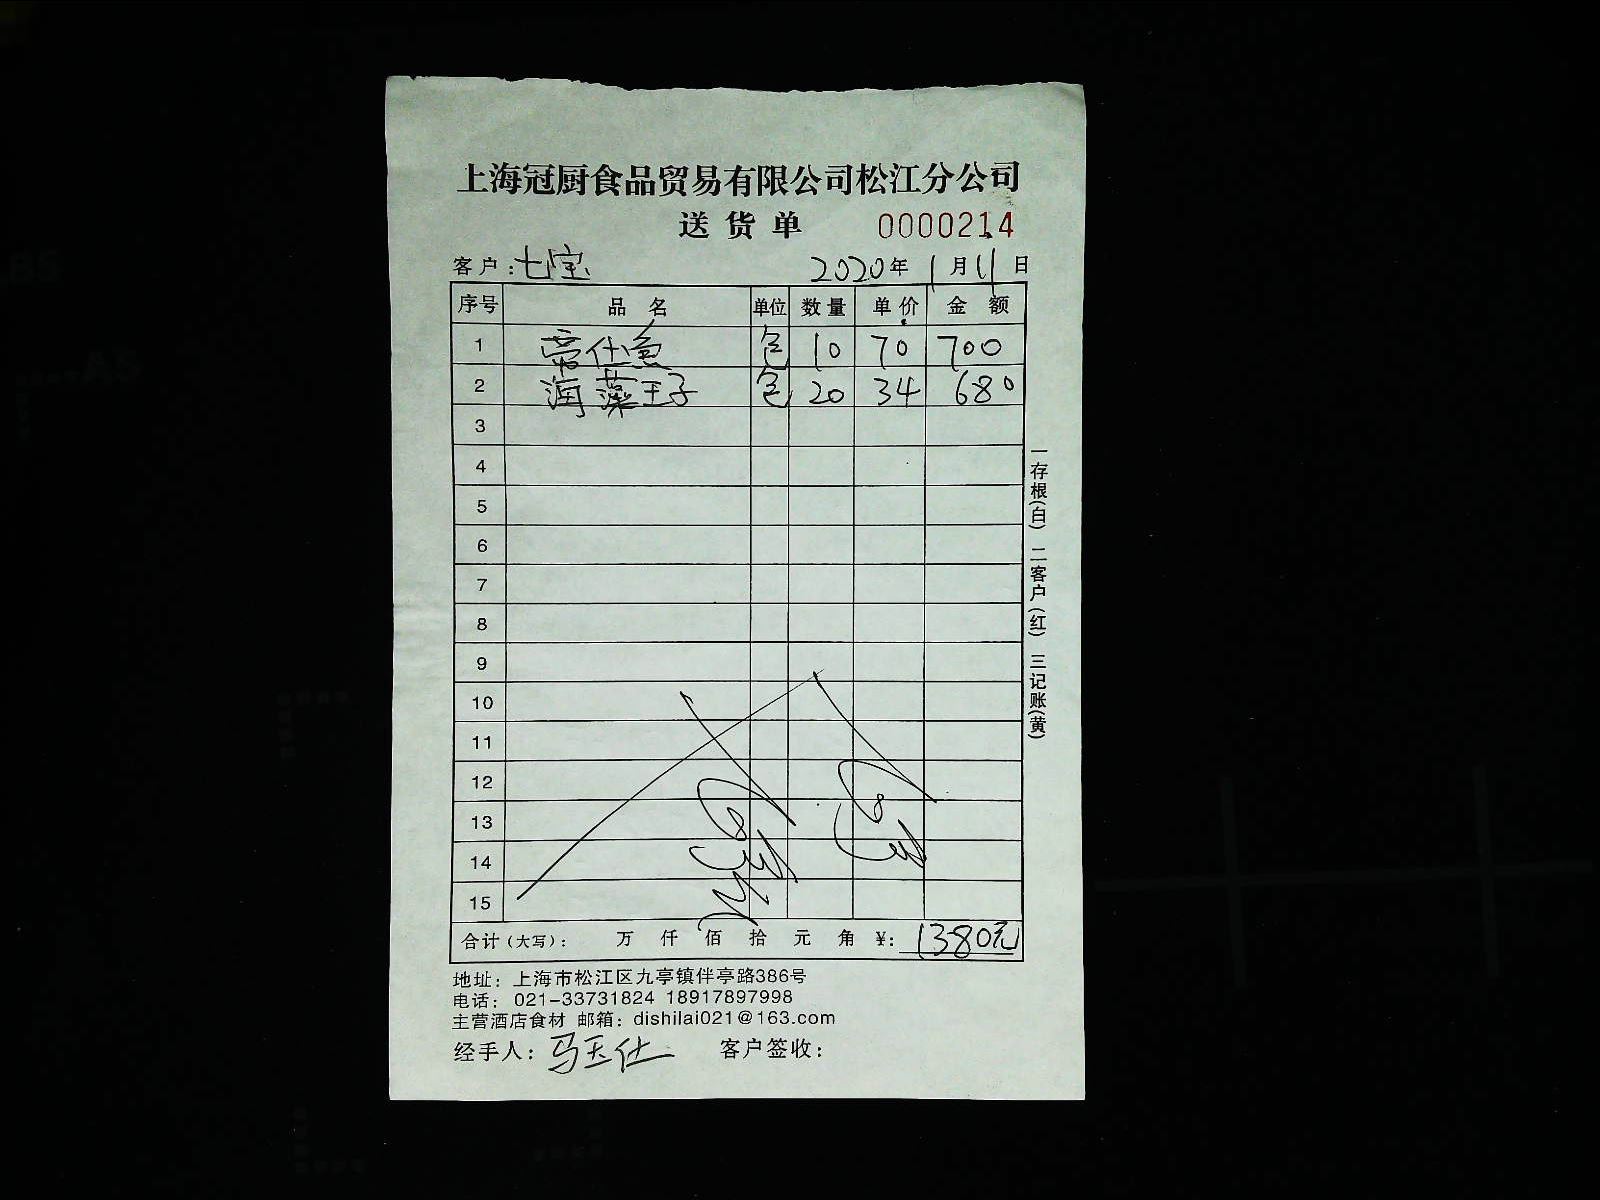 上海冠厨食品贸易有限公司松江分公司
送货单 0000214
客户：七宝 2020年1月11日
序号 品名 单位 数量 单价 金额
1 帝仕鱼 包 10 70 700
2 海藻王子 包 20 34 680
3
4
5
6
7
8
9
10
11
12
13
14
15
合计（大写）： 万 仟 佰 拾 元 角 ¥：1380元
一存根(白) 二客户(红) 三记账(黄)
地址：上海市松江区九亭镇伴亭路386号
电话：021-33731824 18917897998
主营酒店食材 邮箱：dishilai021@163.com
经手人：马玉仕 客户签收：